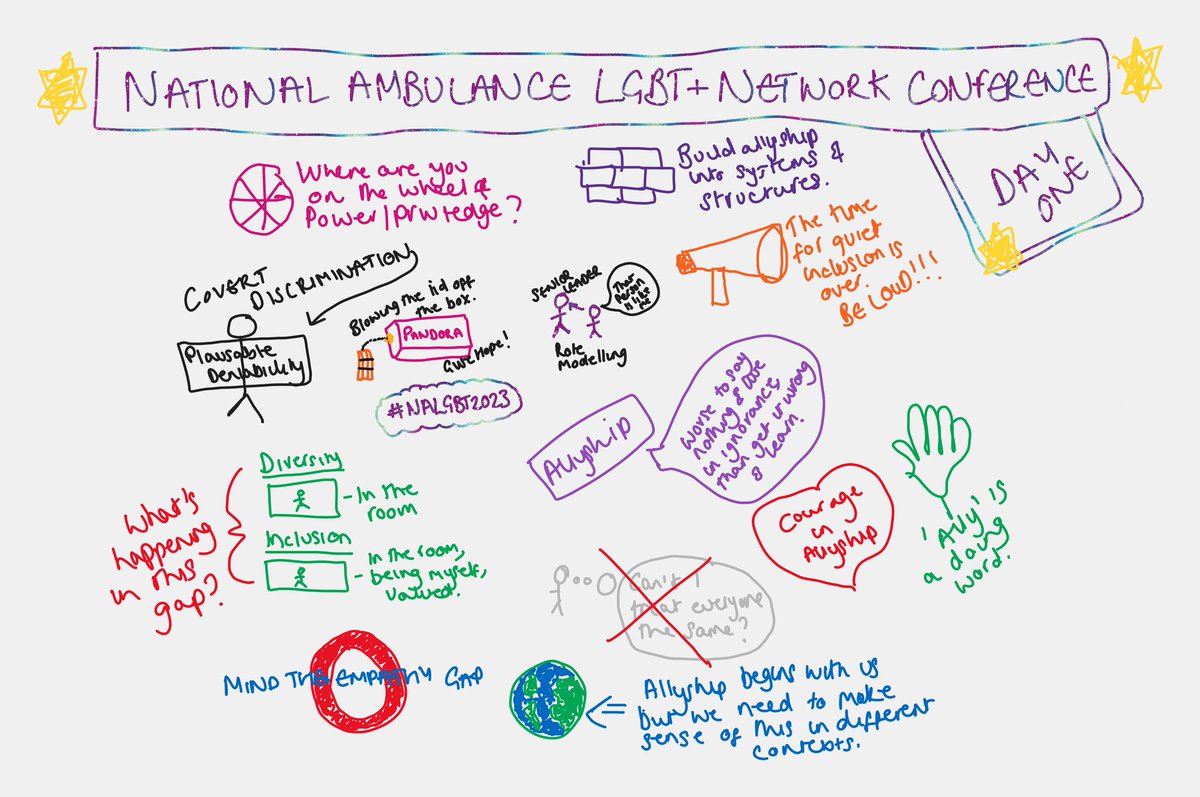 NATIONAL AMBULANCE LGBT+ NETWORK CONFERENCE
DAY
ONE
Where are you
on the wheel of
Power/privledge?
Build allyship
into systems &
structures.
The time
for quiet
inclusion is
over.
BE LOUD!!!
COVERT
DISCRIMINATION
Plausable
Deniability
Blowing the lid off
the box.
PANDORA
Give Hope!
#NALGBT2023
SENIOR
LEADER
That
person
is like
me
Role
Modelling
Allyship
Worse to say
nothing & live
in ignorance,
than get it wrong
& learn.
Courage
in
Allyship
'Ally' is
a doing
word.
What's
happening
in this
gap?
Diversity
- In the
room
Inclusion
- In the room,
being myself,
valued.
Can't I
treat everyone
the same?
MIND THE EMPATHY GAP
Allyship begins with us
but we need to make
sense of this in different
contexts.